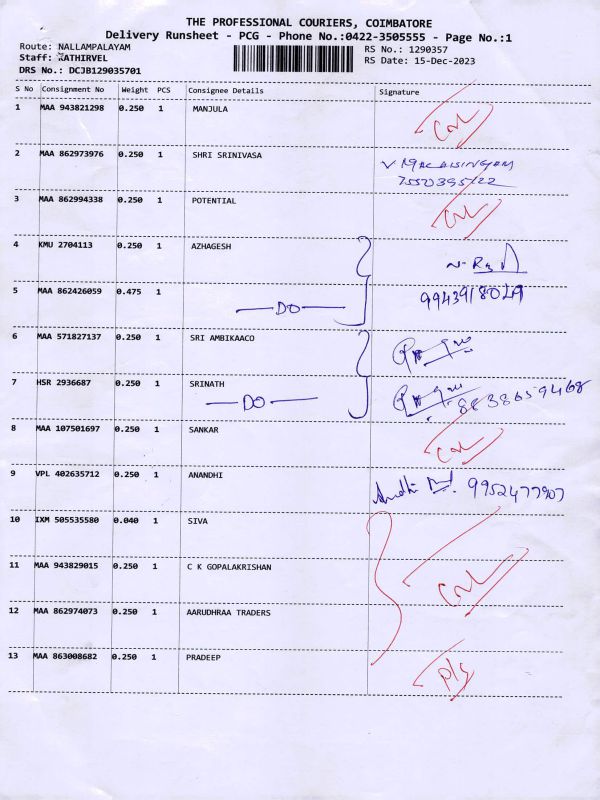 THE PROFESSIONAL COURIERS, COIMBATORE
Delivery Runsheet - PCG - Phone No.:0422-3505555 - Page No.:1
Route: NALLAMPALAYAM
RS No.: 1290357
Staff: KATHIRVEL
RS Date: 15-Dec-2023
DRS No.: DCJB129035701
S No Consignment No Weight PCS Consignee Details Signature
1 MAA 943821298 0.250 1 MANJULA
2 MAA 862973976 0.250 1 SHRI SRINIVASA
3 MAA 862994338 0.250 1 POTENTIAL
4 KMU 2704113 0.250 1 AZHAGESH
5 MAA 862426059 0.475 1 DO
6 MAA 571827137 0.250 1 SRI AMBIKAACO
7 HSR 2936687 0.250 1 SRINATH
DO 8838659468
8 MAA 107501697 0.250 1 SANKAR
9 VPL 402635712 0.250 1 ANANDHI 9952477907
10 IXM 505535580 0.040 1 SIVA
11 MAA 943829015 0.250 1 C K GOPALAKRISHAN
12 MAA 862974073 0.250 1 AARUDHRAA TRADERS
13 MAA 863008682 0.250 1 PRADEEP